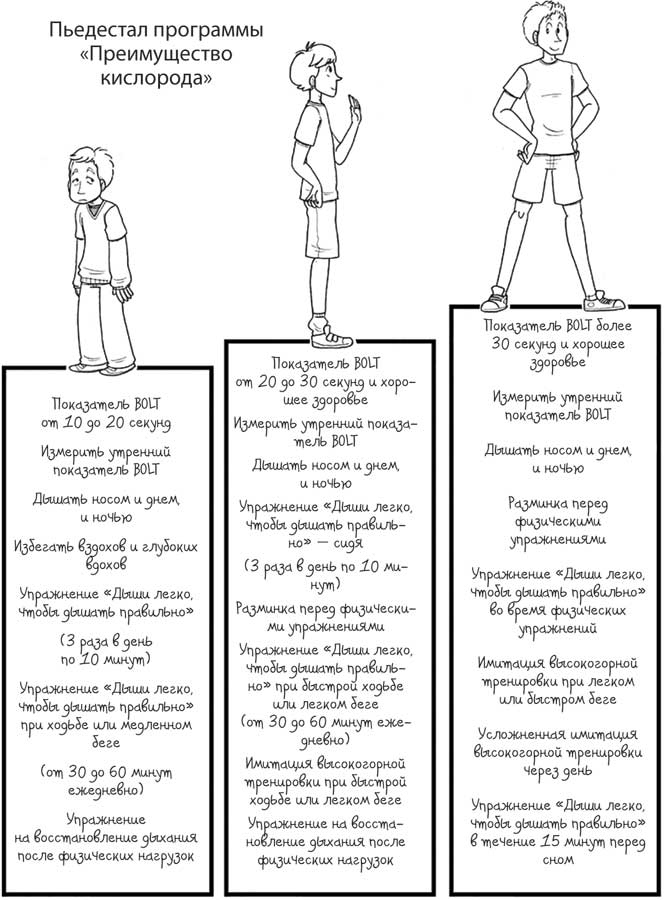 Пьедестал программы
«Преимущество
кислорода»
Показатель BOLT
от 10 до 20 секунд
Измерить утренний
показатель BOLT
Дышать носом и днем,
и ночью
Избегать вздохов и глубоких
вдохов
Упражнение «Дыши легко,
чтобы дышать правильно»
(3 раза в день
по 10 минут)
Упражнение «Дыши легко,
чтобы дышать правильно»
при ходьбе или медленном
беге
(от 30 до 60 минут
ежедневно)
Упражнение
на восстановление дыхания
после физических нагрузок
Показатель BOLT
от 20 до 30 секунд и хоро-
шее здоровье
Измерить утренний показа-
тель BOLT
Дышать носом и днем,
и ночью
Упражнение «Дыши легко,
чтобы дышать правиль-
но» — сидя
(3 раза в день по 10 ми-
нут)
Разминка перед физически-
ми упражнениями
Упражнение «Дыши легко,
чтобы дышать правиль-
но» при быстрой ходьбе
или легком беге
(от 30 до 60 минут еже-
дневно)
Имитация высокогорной
тренировки при быстрой
ходьбе или легком беге
Упражнение на восста-
новление дыхания после
физических нагрузок
Показатель BOLT более
30 секунд и хорошее
здоровье
Измерить утренний
показатель BOLT
Дышать носом и днем,
и ночью
Разминка перед
физическими
упражнениями
Упражнение «Дыши легко,
чтобы дышать правильно»
во время физических
упражнений
Имитация высокогорной
тренировки при легком
или быстром беге
Усложненная имитация
высокогорной тренировки
через день
Упражнение «Дыши легко,
чтобы дышать правильно»
в течение 15 минут перед
сном